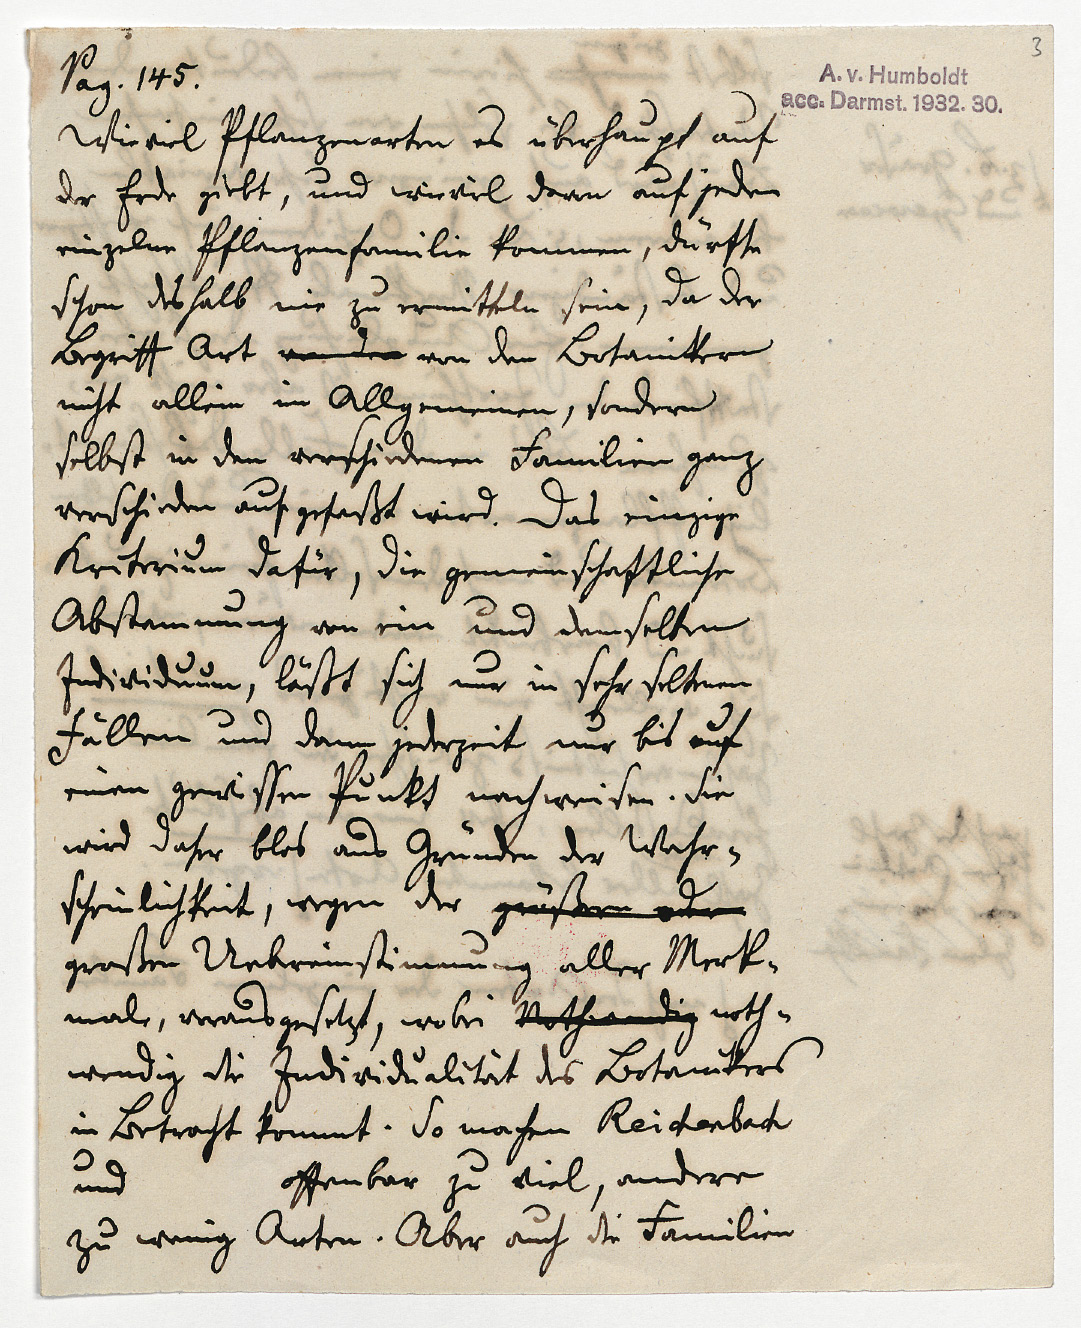 3
A. v. Humboldt
acc. Darmst. 1932. 30.
Pag. 145.
Wieviel Pflanzenarten es überhaupt auf
der Erde giebt, und wieviel davon auf jeden
einzelne Pflanzenfamilie kommen, dürfte
schon deshalb nie zu ermitteln sein, da der
Begriff Art von den Botanikern
nicht allein im Allgemeinen, sondern
selbst in den verschiedenen Familien ganz
verschieden aufgefaßt wird. Das einzige
Kriterium dafür, die gemeinschaftliche
Abstammung von ein und demselben
Individuum, läßt sich nur in sehr seltenen
Fällen und dann jederzeit nur bis auf
einen gewissen Punkt nachweisen. Sie
wird daher blos aus Gründen der Wahr-
scheinlichkeit, wegen der größern oder
großen Uebereinstimmung aller Merk-
male, vorausgesetzt, wobei Nothwendig noth-
wendig die Individualität des Botanikers
in Betracht kommt. So machen Reichenbach
und offenbar zu viel, andere
zu wenig Arten. Aber auch die Familien